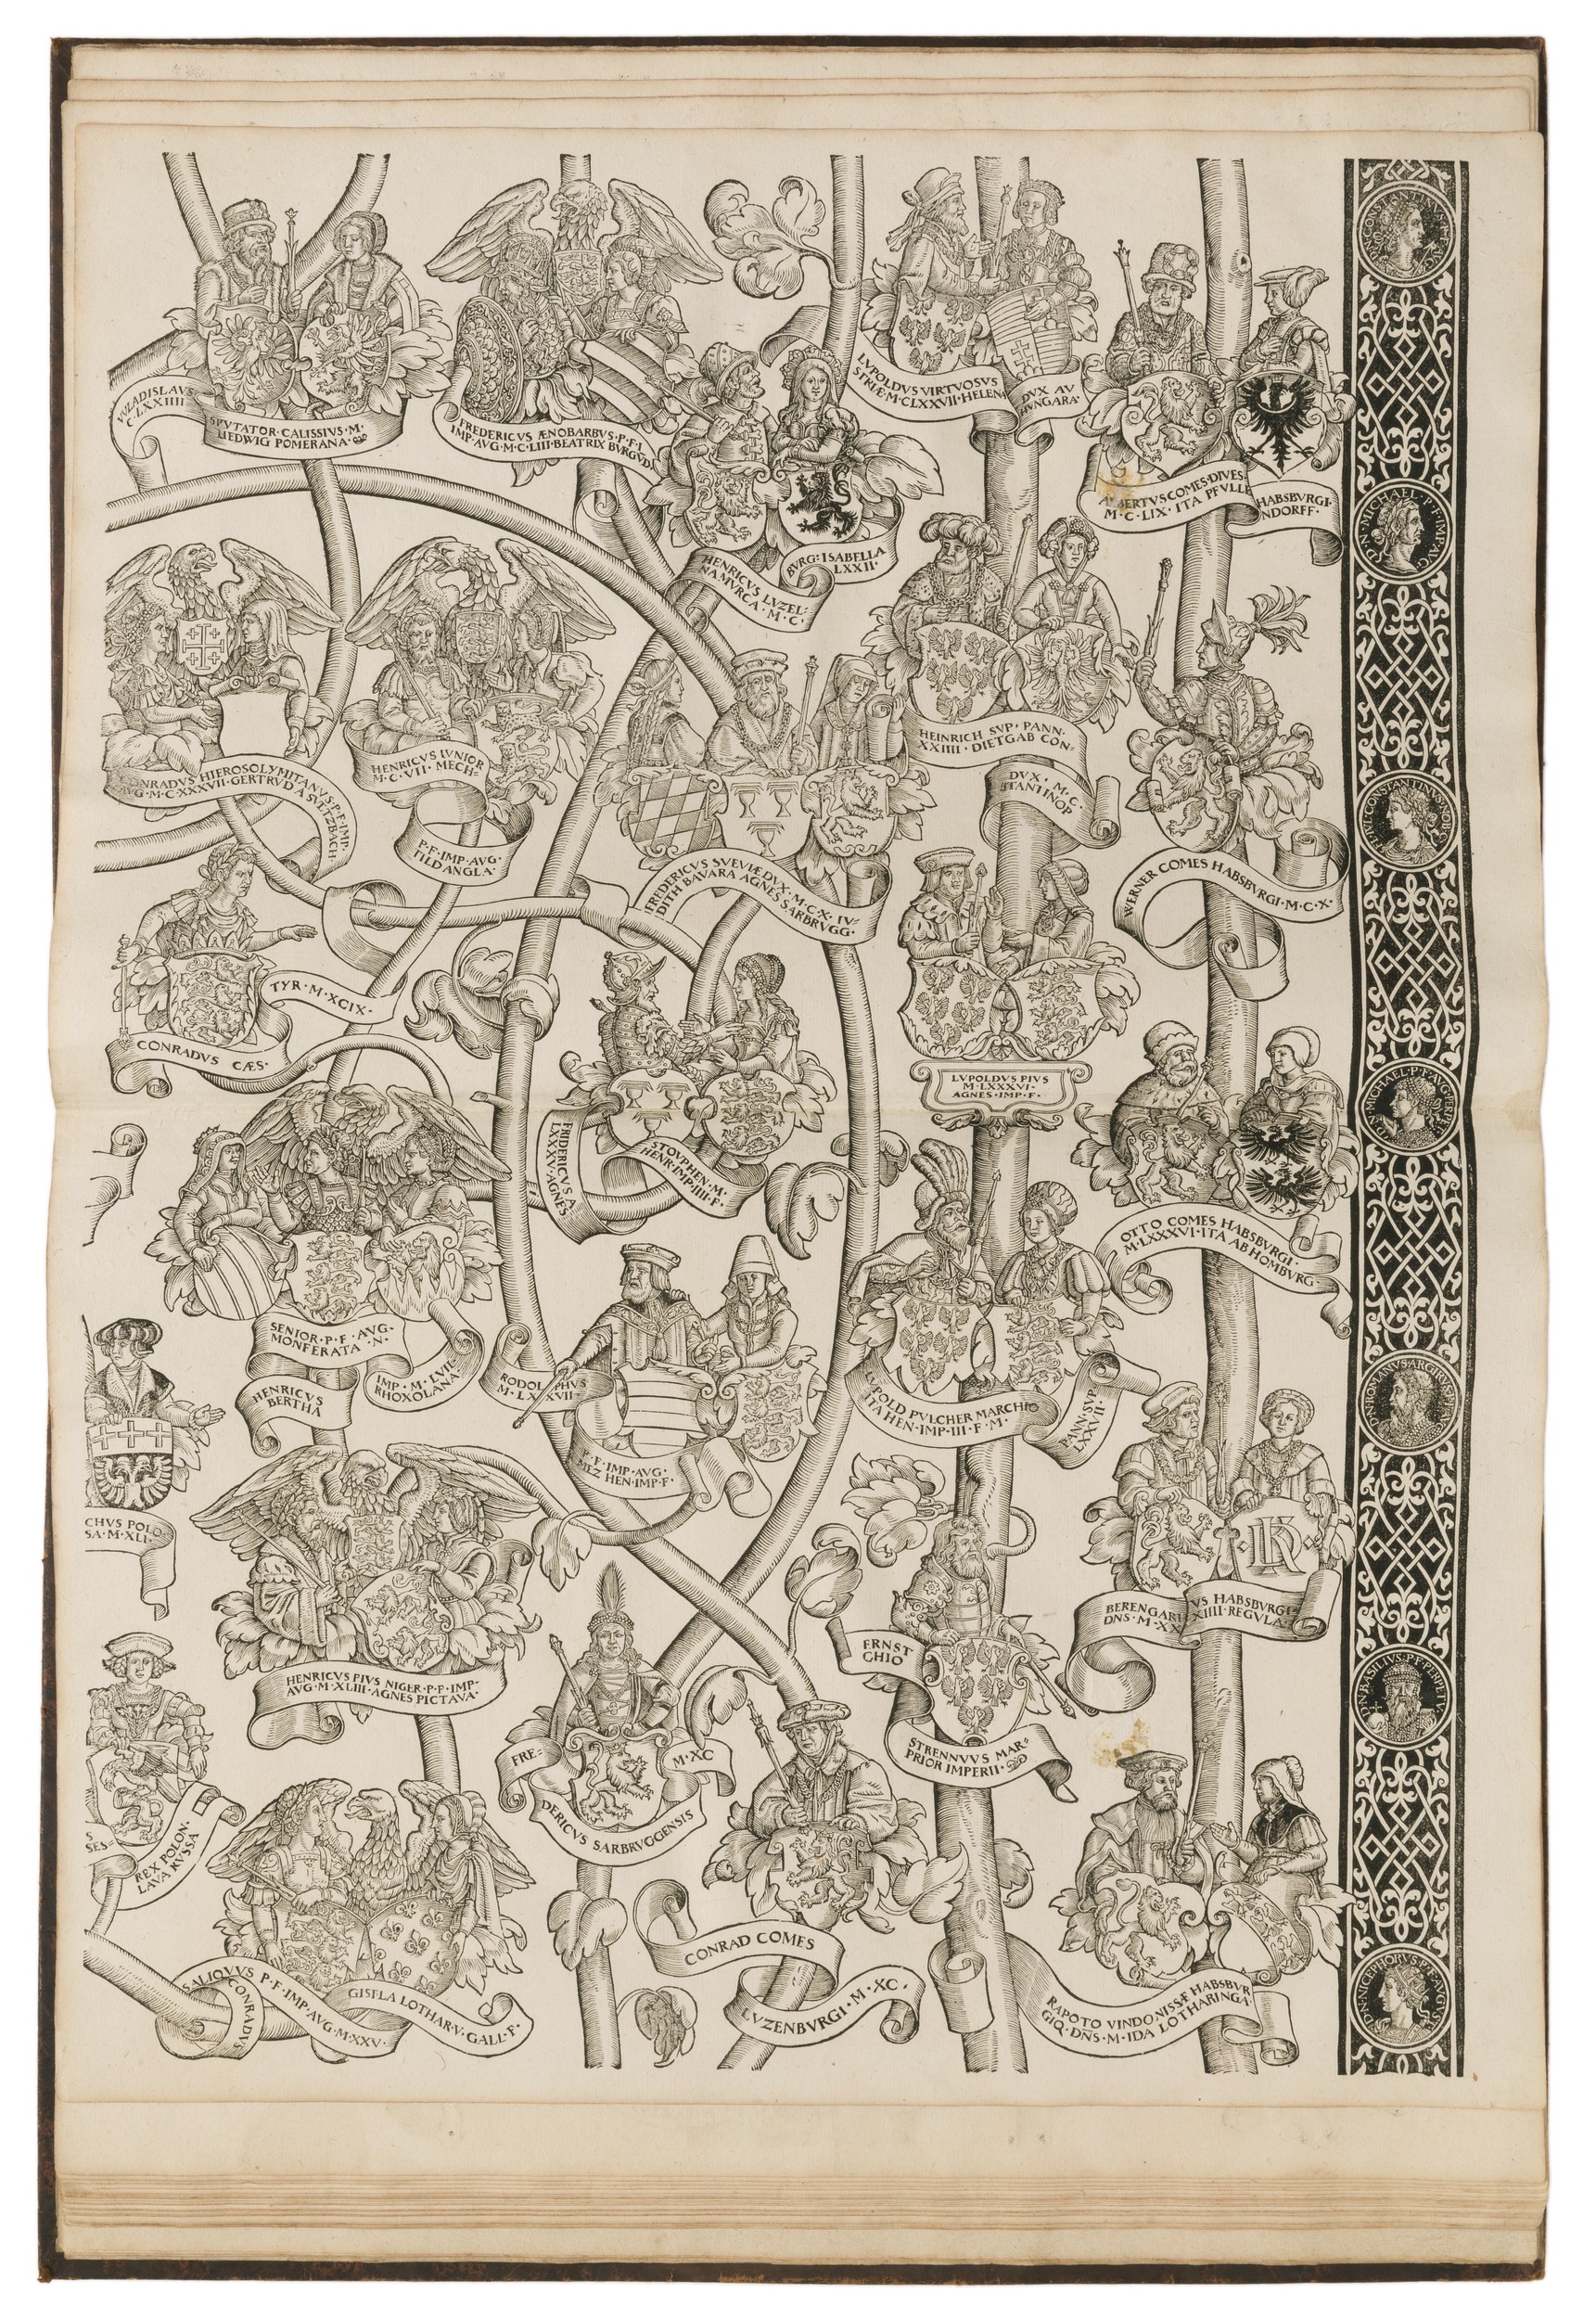 C·LXXIIII
SPVTATOR·CALISSIVS·M·
HEDWIG POMERANA·
FREDERICVS ÆNOBARBVS·P·F·I·
IMP·AVG·M·C·LIII·BEATRIX BVRGVD·
LVPOLDVS VIRTVOSVS
STRIÆ·M·CLXXVII·HELENA
DVX AV
HVNGARA·
HENRICVS LVZEL:
NAMVRCA·M·C·
BVRG:ISABELLA
LXXII·
BERTVS COMES·DIVES·
M·C·LIX·ITA PFVLLE
HABSBVRGI·
NDORFF·
CONRADVS HIEROSOLYMITANVS·P·F·IMP·
AVG·M·C·XXXVII·GERTRVD A SVLTZBACH·
HENRICVS IVNIOR
M·C·VII·MECH:
P·F·IMP·AVG·
TILD ANGLA·
FREDERICVS SVEVIÆ DVX·M·C·X·IV:
DITH BAVARA AGNES SARBRVGG·
HEINRICH SVP·PANN·
XXIIII·DIETGAB CON:
DVX·M·C·
STANTINOP
WERNER COMES HABSBVRGI·M·C·X·
TYR·M·XCIX·
CONRADVS CÆS·
FRIDERICVS A
LXXXV·AGNES
STOVPHEN·M·
HENR·IMP·IIII·F·
LVPOLDVS PIVS
M·LXXXVI·
AGNES·IMP·F·
OTTO COMES HABSBVRGI·
M·LXXXVI·ITA AB HOMBVRG·
SENIOR·P·F·AVG·
MONFERATA·N·
HENRICVS
BERTHA
IMP·M·LVII·
RHOXOLANA·
RODOLPHVS
M·LXXVII·
P·F·IMP·AVG·
MEZ HEN·IMP·F·
LVPOLD PVLCHER MARCHIO
ITA HEN·IMP·III·F·M·
PANN·SVP·
LXXVII·
CHVS POLO
SA·M·XLI·
HENRICVS PIVS NIGER·P·F·IMP·
AVG·M·XLIII·AGNES PICTAVA·
ERNST
CHIO
STRENNVVS MAR:
PRIOR IMPERII·
BERENGARI
DNS·M·XX
VS HABSBVRGI·
XIIII·REGVLA·
FRE:
M·XC
DERICVS SARBRVGGENSIS
S
SES·
REX POLON·
LAVA RVSSA
SALIQVVS P·F·IMP·AVG·M·XXV·
CONRADVS
GISELA LOTHAR·V·GALL·F·
CONRAD COMES
LVZENBVRGI·M·XC·
RAPOTO VINDONISSÆ HABSBVR
GIQ·DNS·M·IDA LOTHARINGA·